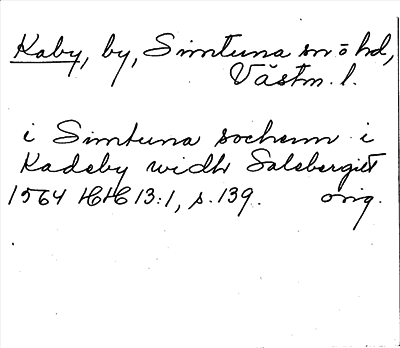 Kaby, by, Simtuna sn o hd,
Västm. l.
i Simtuna sochenn i
Kadeby widh Salebergitt
1564 HH 13:1, s. 139. orig.